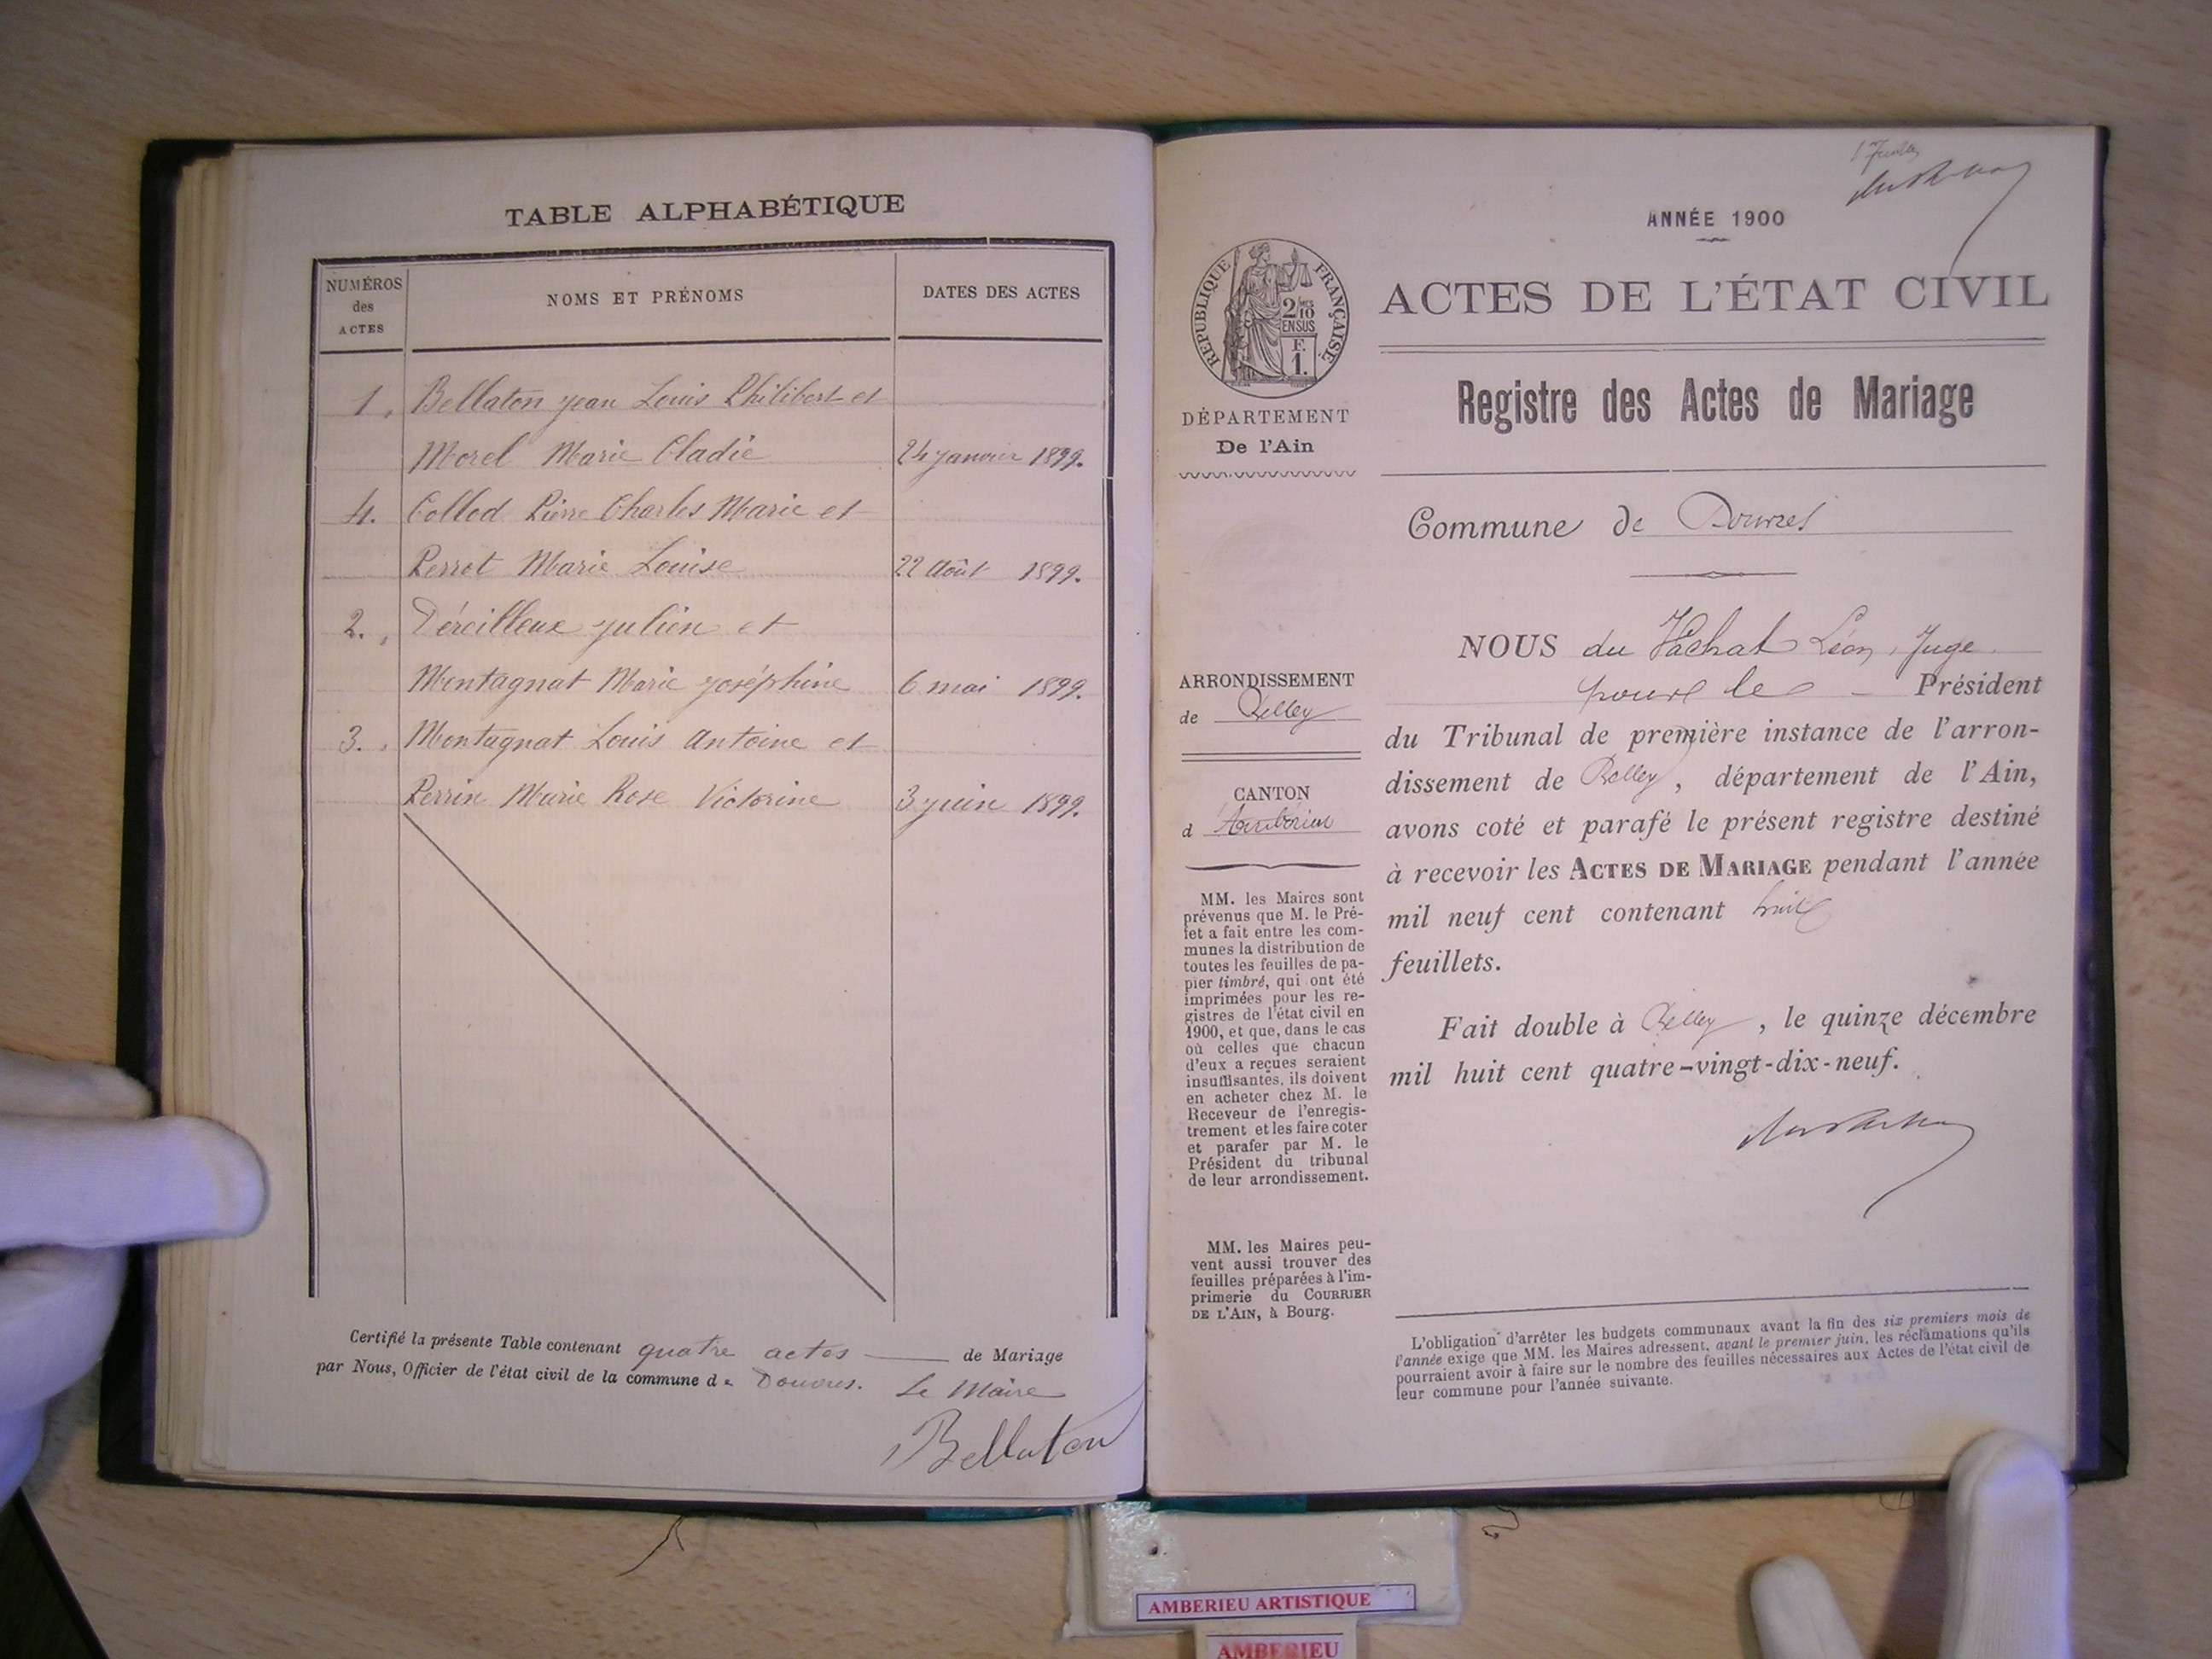 TABLE ALPHABÉTIQUE
NUMÉROS des ACTES
NOMS ET PRÉNOMS
DATES DES ACTES
1. Bellaton jean Louis Philibert et
Morel Marie Cladie 24 janvier 1899.
4. Collod Pierre Charles Marie et
Perrot Marie Louise 22 Août 1899.
2. Déreilleux julien et
Montagnat Marie joséphine 6 mai 1899.
3. Montagnat Louis Antoine et
Perrin Marie Rose Victorine 3 juin 1899.
Certifié la présente Table contenant quatre actes de Mariage
par Nous, Officier de l'état civil de la commune de Douvres. Le Maire
Bellaton
ANNÉE 1900
RÉPUBLIQUE FRANÇAISE
2/10
EN SUS
F.
1.
DÉPARTEMENT
De l'Ain
ARRONDISSEMENT
de Belley
CANTON
d'Ambérieu
MM. les Maires sont
prévenus que M. le Pré-
fet a fait entre les com-
munes la distribution de
toutes les feuilles de pa-
pier timbré, qui ont été
imprimées pour les re-
gistres de l'état civil en
1900, et que, dans le cas
où celles que chacun
d'eux a reçues seraient
insuffisantes, ils doivent
en acheter chez M. le
Receveur de l'enregis-
trement et les faire coter
et parafer par M. le
Président du tribunal
de leur arrondissement.
MM. les Maires peu-
vent aussi trouver des
feuilles préparées à l'im-
primerie du COURRIER
DE L'AIN, à Bourg.
ACTES DE L'ÉTAT CIVIL
Registre des Actes de Mariage
Commune de Douvres
NOUS du Vachat Léon, Juge
pour le Président
du Tribunal de première instance de l'arron-
dissement de Belley, département de l'Ain,
avons coté et parafé le présent registre destiné
à recevoir les ACTES DE MARIAGE pendant l'année
mil neuf cent contenant huit
feuillets.
Fait double à Belley, le quinze décembre
mil huit cent quatre-vingt-dix-neuf.
L'obligation d'arrêter les budgets communaux avant la fin des six premiers mois de
l'année exige que MM. les Maires adressent, avant le premier juin, les réclamations qu'ils
pourraient avoir à faire sur le nombre des feuilles nécessaires aux Actes de l'état civil de
leur commune pour l'année suivante.
AMBERIEU ARTISTIQUE
AMBERIEU